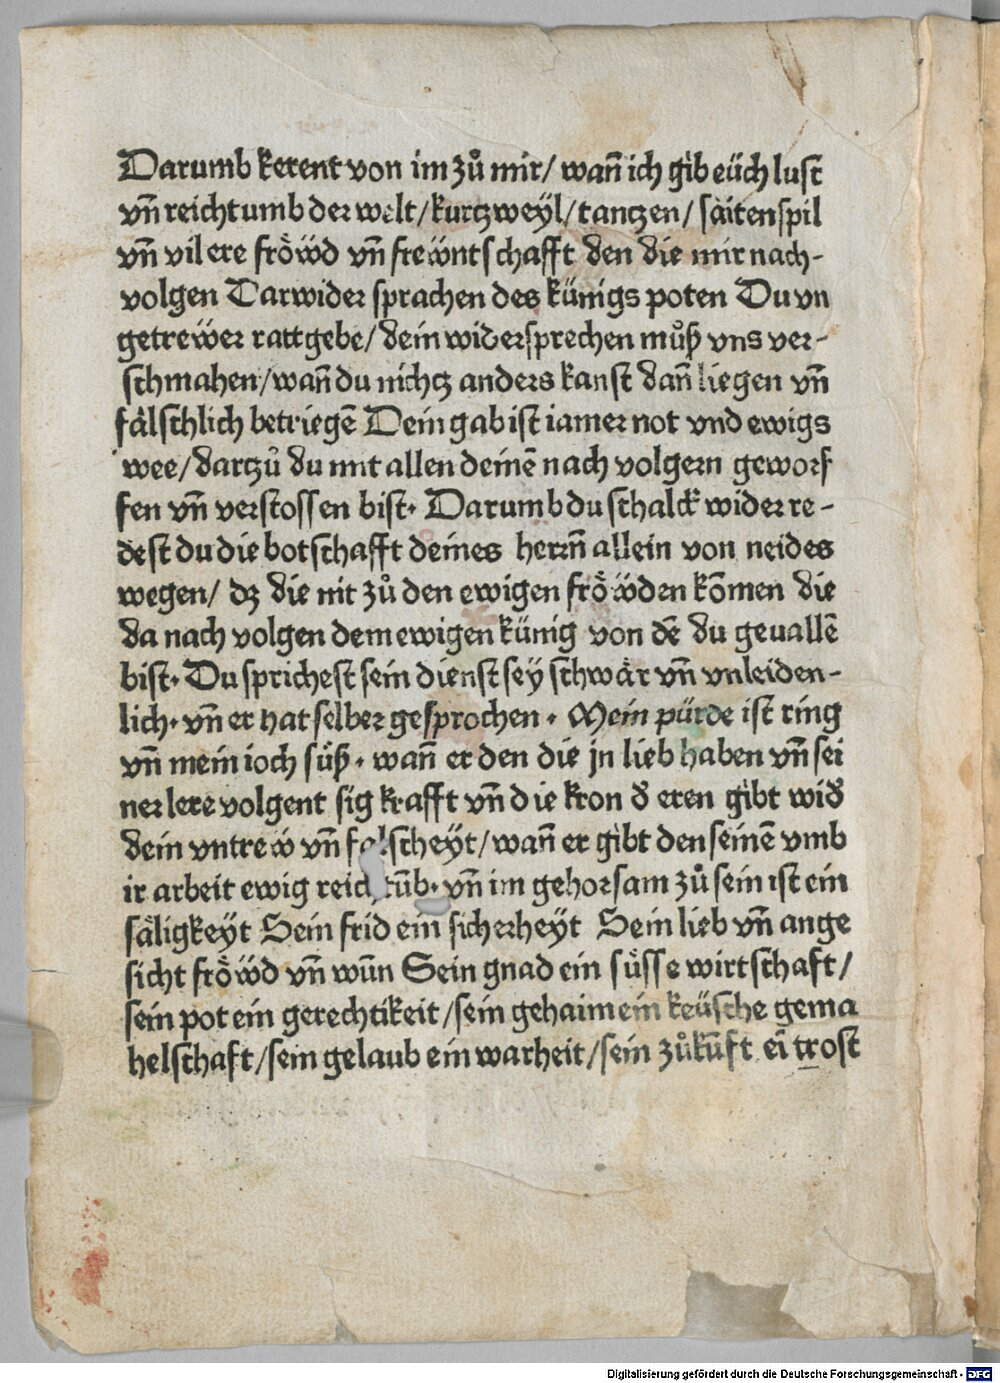 Darumb kerent von im zů mir/ wañ ich gib eüch lust
vñ reichtumb der welt/kurtzweyl/tantzen/ saͤitenspil
vñ vil ere froͤẅd vñ freẅntschafft den die mir nach-
volgen Darwider sprachen des künigs poten Du vn
getreẅer rattgebe/ dein widersprechen můß vns ver-
schmahen/wañ du nichtz anders kanst dañ liegen vñ
faͤlschlich betriegē Dein gab ist iamer not vnd ewigs
wee/dartzů du mit allen deinē nach volgern geworf
fen vñ verstossen bist· Darumb du schalck widerre-
dest du die botschafft deines herrñ allein von neides
wegen/ dz die nit zů den ewigen froͤẅden kōmen die
da nach volgen dem ewigen künig von dē du geuallē
bist· Du sprichest sein dienst sey schwaͤr vñ vnleiden-
lich· vñ er hat selber gesprochen · Mein pürde ist ring
vñ mein ioch süß · wañ er den die jn lieb haben vñ sei
ner lere volgent sig krafft vñ die kron đ eren gibt wiđ
dein vntreẅ vñ falscheyt/wañ er gibt den seinē vmb
ir arbeit ewig reichtūb· vñ im gehorsam zů sein ist ein
saͤligkeyt Sein frid ein sicherheyt Sein lieb vñ ange
sicht froͤẅd vñ wūn Sein gnad ein süsse wirtschaft/
sein pot ein gerechtikeit/sein gehaim ein keüsche gema
helschaft/sein gelaub ein warheit/sein zůkūft eī trost
Digitalisierung gefördert durch die Deutsche Forschungsgemeinschaft - DFG